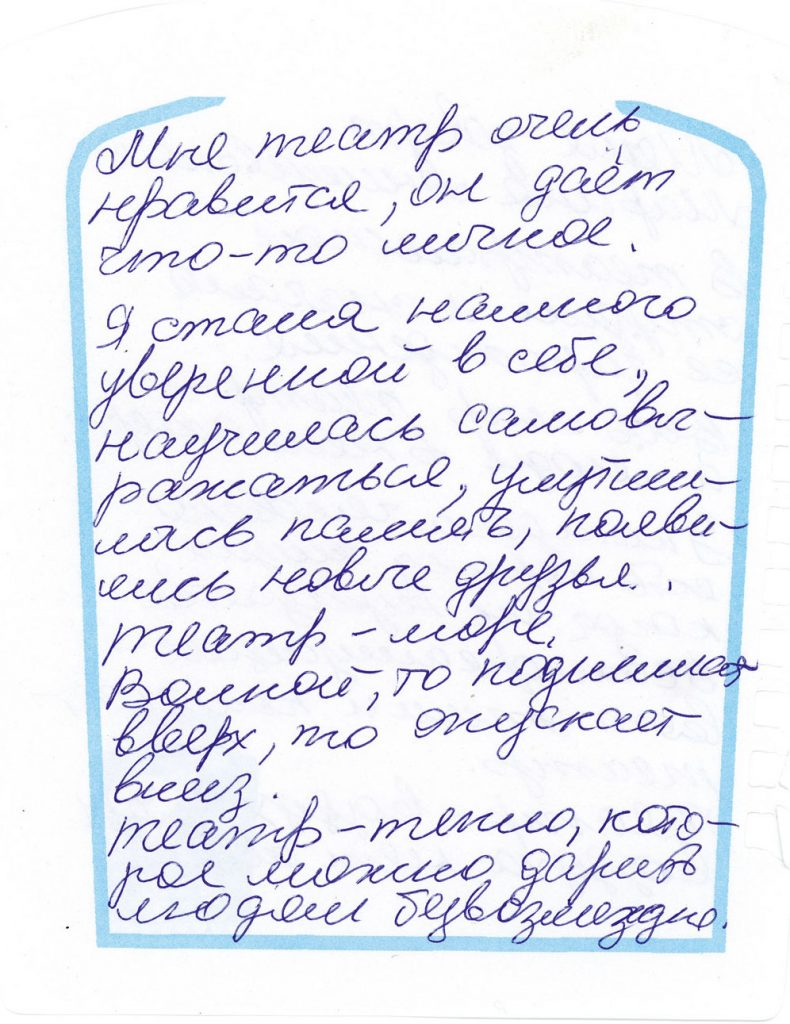 Мне театр очень
нравится, он даёт
что-то личное.
Я стала намного
уверенной в себе,
научилась самовы-
ражаться, улучши-
лась память, появи-
лись новые друзья.
театр - море.
Волной, то поднимает
вверх, то опускает
вниз.
театр - тепло, кото-
рое можно дарить
людям безвозмездно.